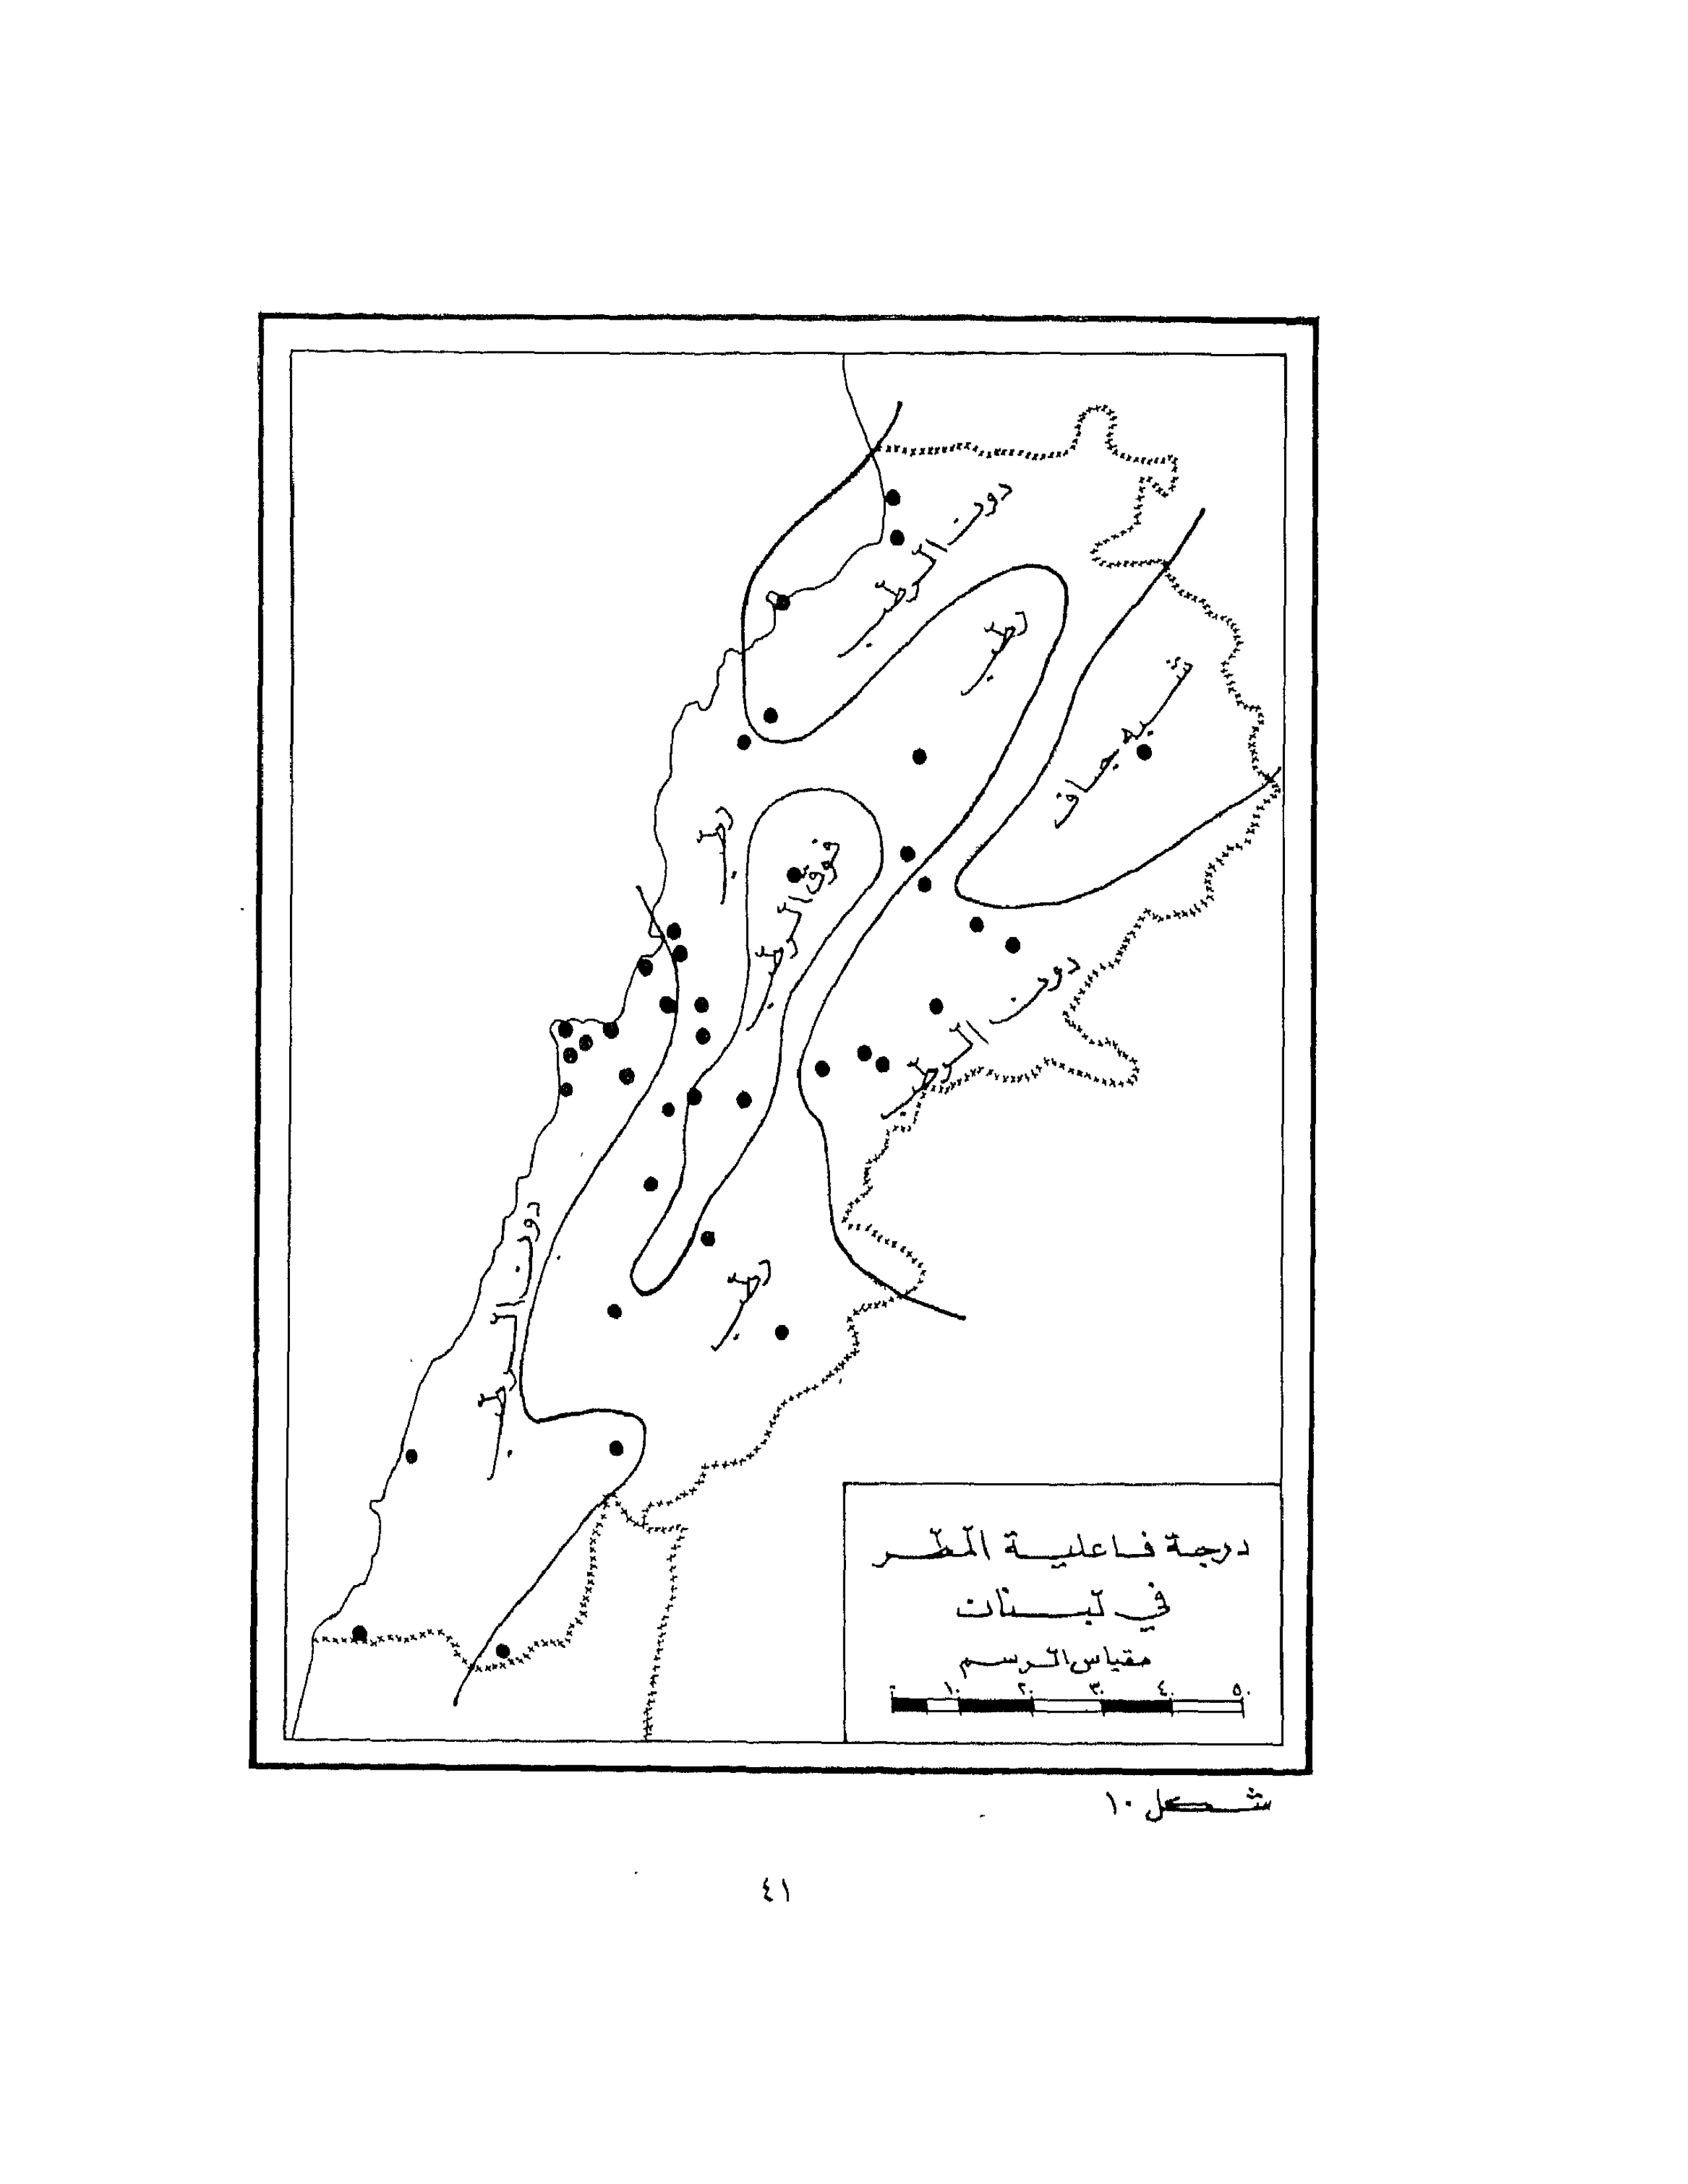 دون الرطب
رطب
شبه جاف
رطب
فوق الرطب
دون الرطب
دون الرطب
رطب
درجة فاعلية المطر
في لبنان
مقياس الرسم
٠ ١٠ ٢٠ ٣٠ ٤٠ ٥٠
شكل ١٠
٤١